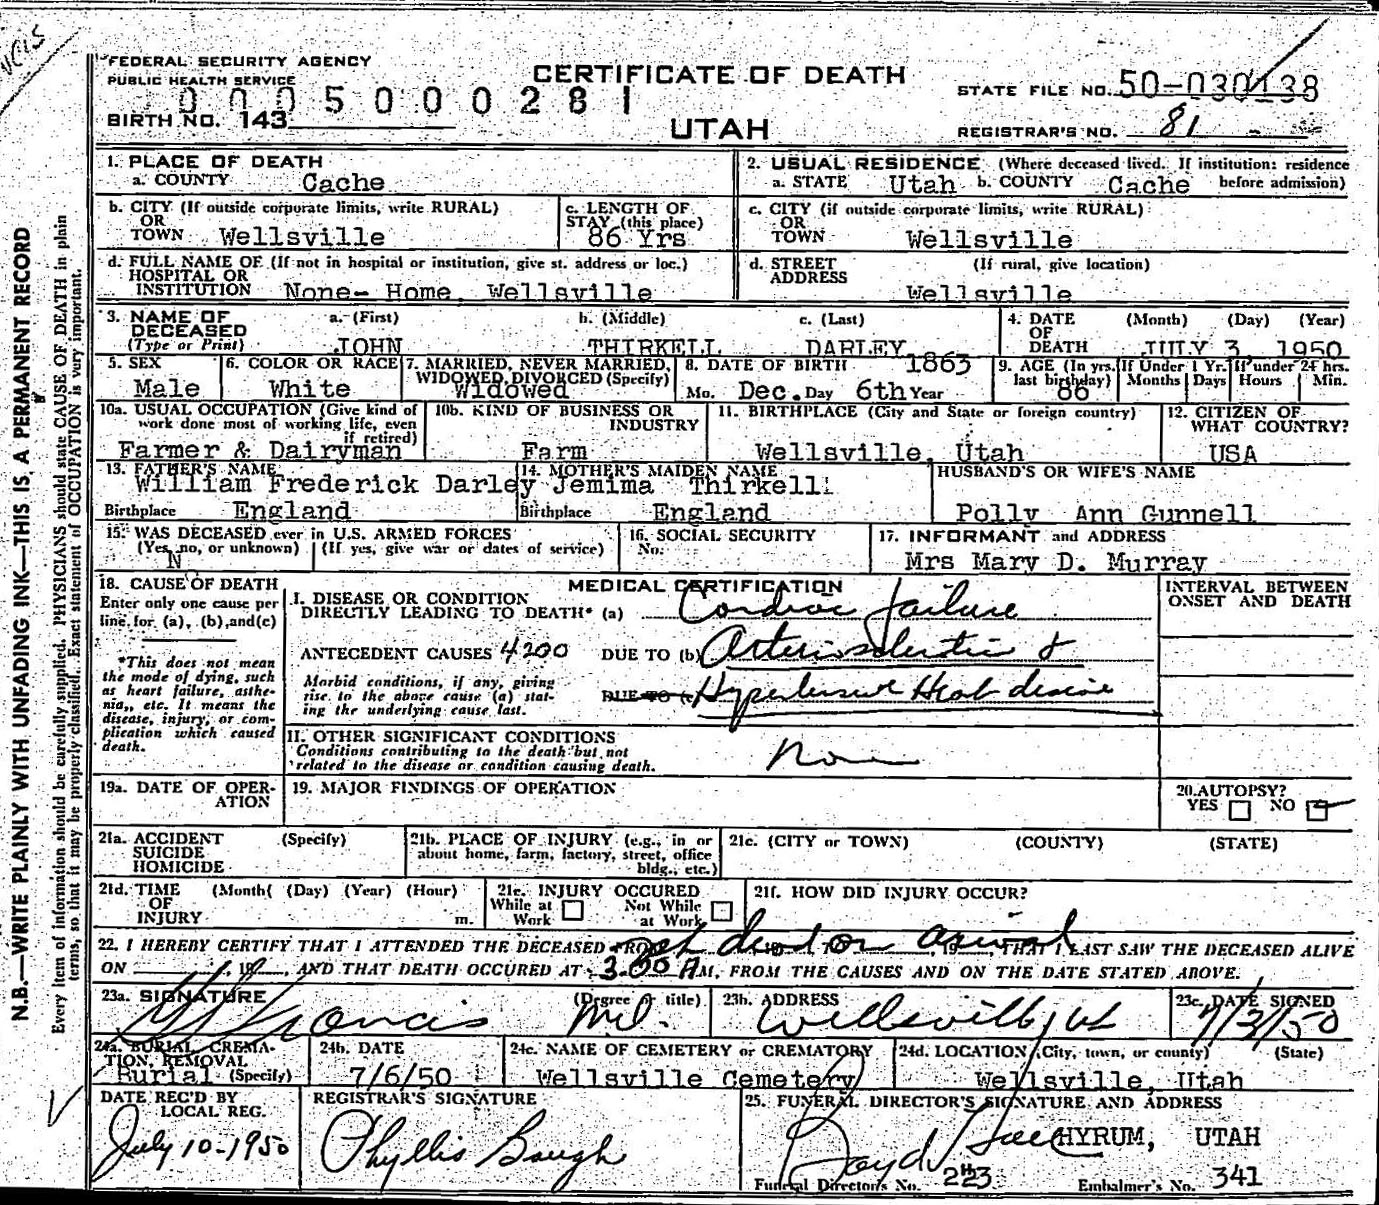 VCIS
FEDERAL SECURITY AGENCY
PUBLIC HEALTH SERVICE
CERTIFICATE OF DEATH
STATE FILE NO. 50-030138
0005000281
BIRTH NO. 143
UTAH
REGISTRAR'S NO. 81
1. PLACE OF DEATH
a. COUNTY Cache
2. USUAL RESIDENCE (Where deceased lived. If institution: residence
a. STATE Utah b. COUNTY Cache before admission)
b. CITY (If outside corporate limits, write RURAL)
OR
TOWN Wellsville
c. LENGTH OF
STAY (this place)
86 Yrs
c. CITY (if outside corporate limits, write RURAL)
OR
TOWN Wellsville
d. FULL NAME OF (If not in hospital or institution, give st. address or loc.)
HOSPITAL OR
INSTITUTION None- Home, Wellsville
d. STREET (If rural, give location)
ADDRESS
Wellsville
3. NAME OF a. (First) b. (Middle) c. (Last)
DECEASED
(Type or Print) JOHN THIRKELL DARLEY
4. DATE (Month) (Day) (Year)
OF
DEATH JULY 3, 1950
5. SEX
Male
6. COLOR OR RACE
White
7. MARRIED, NEVER MARRIED,
WIDOWED, DIVORCED (Specify)
Widowed
8. DATE OF BIRTH 1863
Mo. Dec. Day 6th Year
9. AGE (In yrs. last birthday) 86
If Under 1 Yr. Months Days
If under 24 hrs. Hours Min.
10a. USUAL OCCUPATION (Give kind of
work done most of working life, even
if retired)
Farmer & Dairyman
10b. KIND OF BUSINESS OR
INDUSTRY
Farm
11. BIRTHPLACE (City and State or foreign country)
Wellsville, Utah
12. CITIZEN OF
WHAT COUNTRY?
USA
13. FATHER'S NAME
William Frederick Darley
Birthplace England
14. MOTHER'S MAIDEN NAME
Jemima Thirkell
Birthplace England
HUSBAND'S OR WIFE'S NAME
Polly Ann Gunnell
15. WAS DECEASED ever in U.S. ARMED FORCES
(Yes, no, or unknown) (If yes, give war or dates of service)
N
16. SOCIAL SECURITY
No.
17. INFORMANT and ADDRESS
Mrs Mary D. Murray
18. CAUSE OF DEATH
Enter only one cause per
line for (a), (b), and (c)
*This does not mean
the mode of dying, such
as heart failure, asthe-
nia, etc. It means the
disease, injury, or com-
plication which caused
death.
MEDICAL CERTIFICATION
INTERVAL BETWEEN
ONSET AND DEATH
I. DISEASE OR CONDITION
DIRECTLY LEADING TO DEATH* (a) Cardiac failure
ANTECEDENT CAUSES 4200 DUE TO (b) Arteriosclerotic &
Morbid conditions, if any, giving
rise to the above cause (a) stat-
ing the underlying cause last.
DUE TO (c) Hypertensive Heart disease
II. OTHER SIGNIFICANT CONDITIONS
Conditions contributing to the death but not
related to the disease or condition causing death.
None
19a. DATE OF OPER-
ATION
19. MAJOR FINDINGS OF OPERATION
20. AUTOPSY?
YES NO
21a. ACCIDENT (Specify)
SUICIDE
HOMICIDE
21b. PLACE OF INJURY (e.g., in or
about home, farm, factory, street, office
bldg., etc.)
21c. (CITY or TOWN) (COUNTY) (STATE)
21d. TIME (Month) (Day) (Year) (Hour)
OF
INJURY m.
21e. INJURY OCCURED
While at Work Not While at Work
21f. HOW DID INJURY OCCUR?
22. I HEREBY CERTIFY THAT I ATTENDED THE DECEASED FROM dead on arrival, THAT I LAST SAW THE DECEASED ALIVE
ON , 19 , AND THAT DEATH OCCURED AT 3:00 AM, FROM THE CAUSES AND ON THE DATE STATED ABOVE.
23a. SIGNATURE (Degree or title)
Francis M.D.
23b. ADDRESS
Wellsville, Ut
23c. DATE SIGNED
7/3/50
24a. BURIAL, CREMA-
TION, REMOVAL
Burial (Specify)
24b. DATE
7/6/50
24c. NAME OF CEMETERY or CREMATORY
Wellsville Cemetery
24d. LOCATION (City, town, or county) (State)
Wellsville, Utah
DATE REC'D BY
LOCAL REG.
July 10-1950
REGISTRAR'S SIGNATURE
Phyllis Baugh
25. FUNERAL DIRECTOR'S SIGNATURE AND ADDRESS
Boyd Hall HYRUM, UTAH
Funeral Director's No. 223 Embalmer's No. 341
N.B.—WRITE PLAINLY WITH UNFADING INK—THIS IS A PERMANENT RECORD
Every item of information should be carefully supplied. PHYSICIANS should state CAUSE OF DEATH in plain
terms, so that it may be properly classified. Exact statement of OCCUPATION is very important.